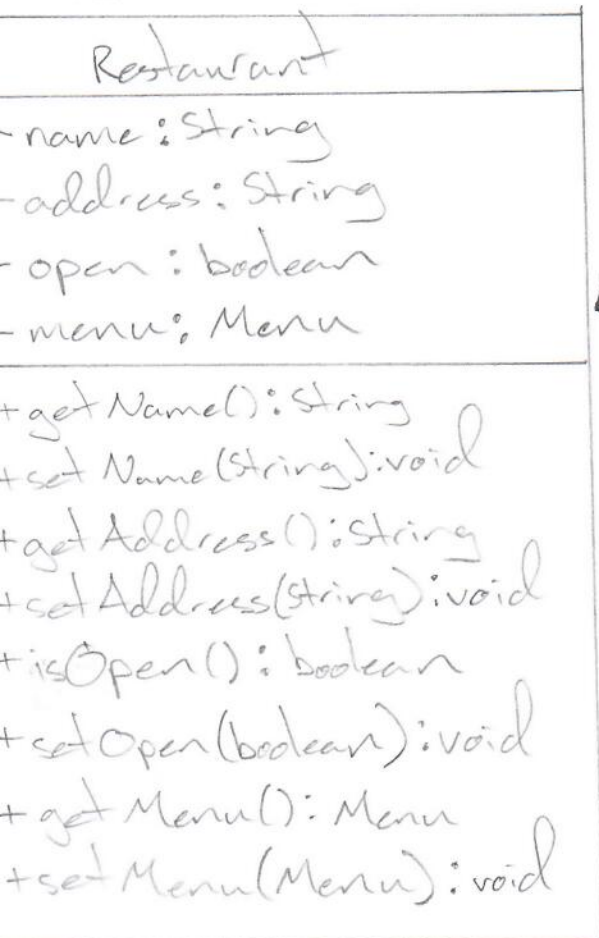 Restaurant
- name: String
- address: String
- open: boolean
- menu: Menu
+ getName(): String
+ setName(String): void
+ getAddress(): String
+ setAddress(String): void
+ isOpen(): boolean
+ setOpen(boolean): void
+ getMenu(): Menu
+ setMenu(Menu): void